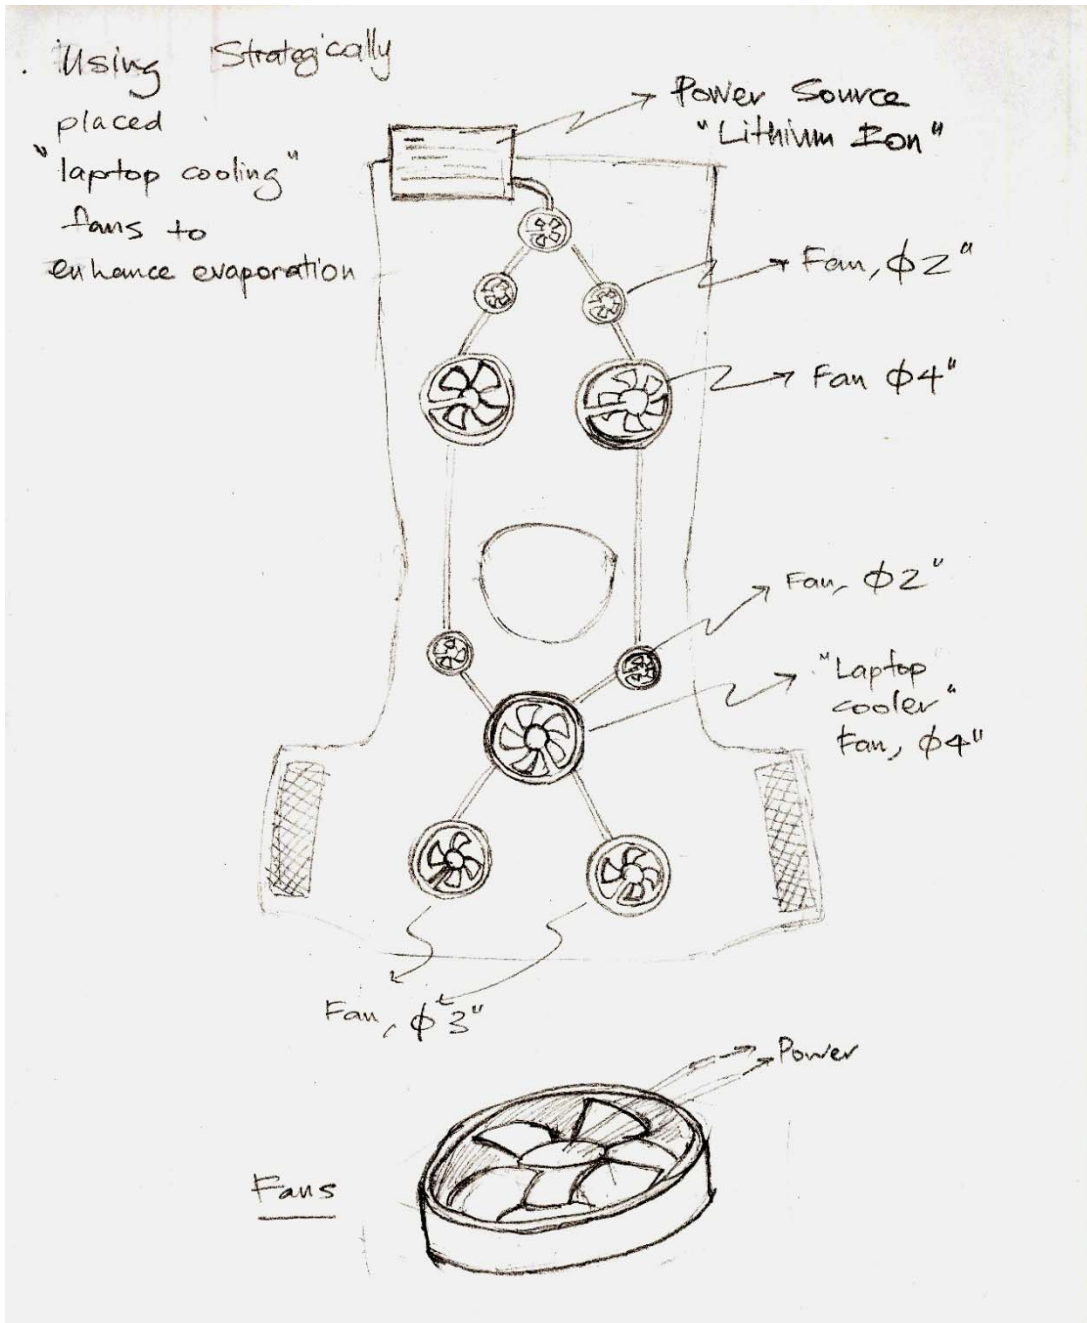 . Using Strategically
placed
"laptop cooling"
fans to
enhance evaporation
Power Source
"Lithium Ion"
Fan, ϕ2"
Fan ϕ4"
Fan, ϕ2"
"Laptop
cooler"
Fan, ϕ4"
Fan, ϕ3"
Power
Fans